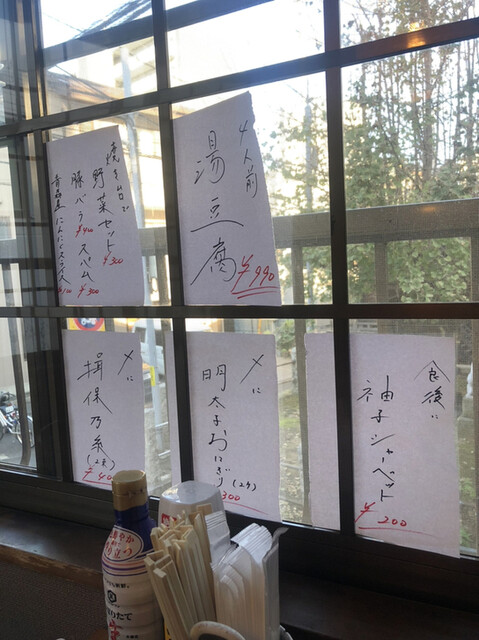 4人前
湯豆腐
¥990
焼き台で
野菜セット ¥300
豚バラ ¥400 スパム ¥300
青森産にんにくスライス ¥100
〆に
明太子おにぎり(2ケ)
300
〆に
揖保乃糸(2束)
¥40
食後に
柚子シャーベット
¥200